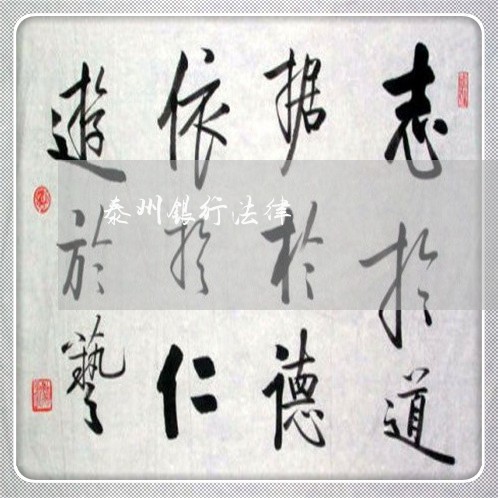 志於道
据於德
依於仁
遊於藝
泰州银行法律